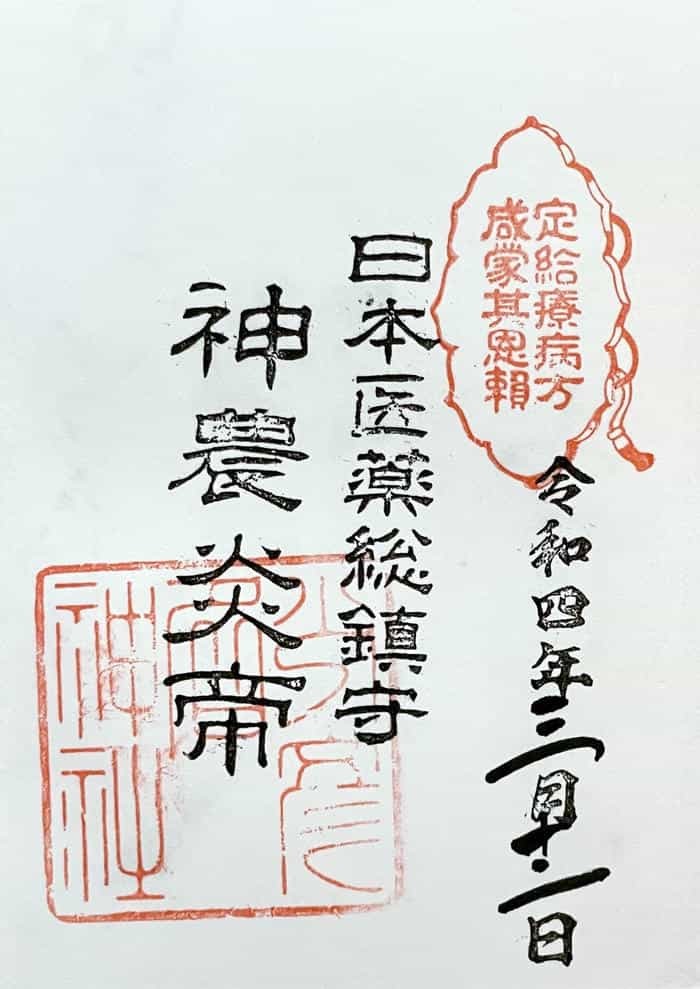 定給療病方
咸蒙其恩頼
令和四年三月十二日
日本医薬総鎮守
神農炎帝
少彦
神社